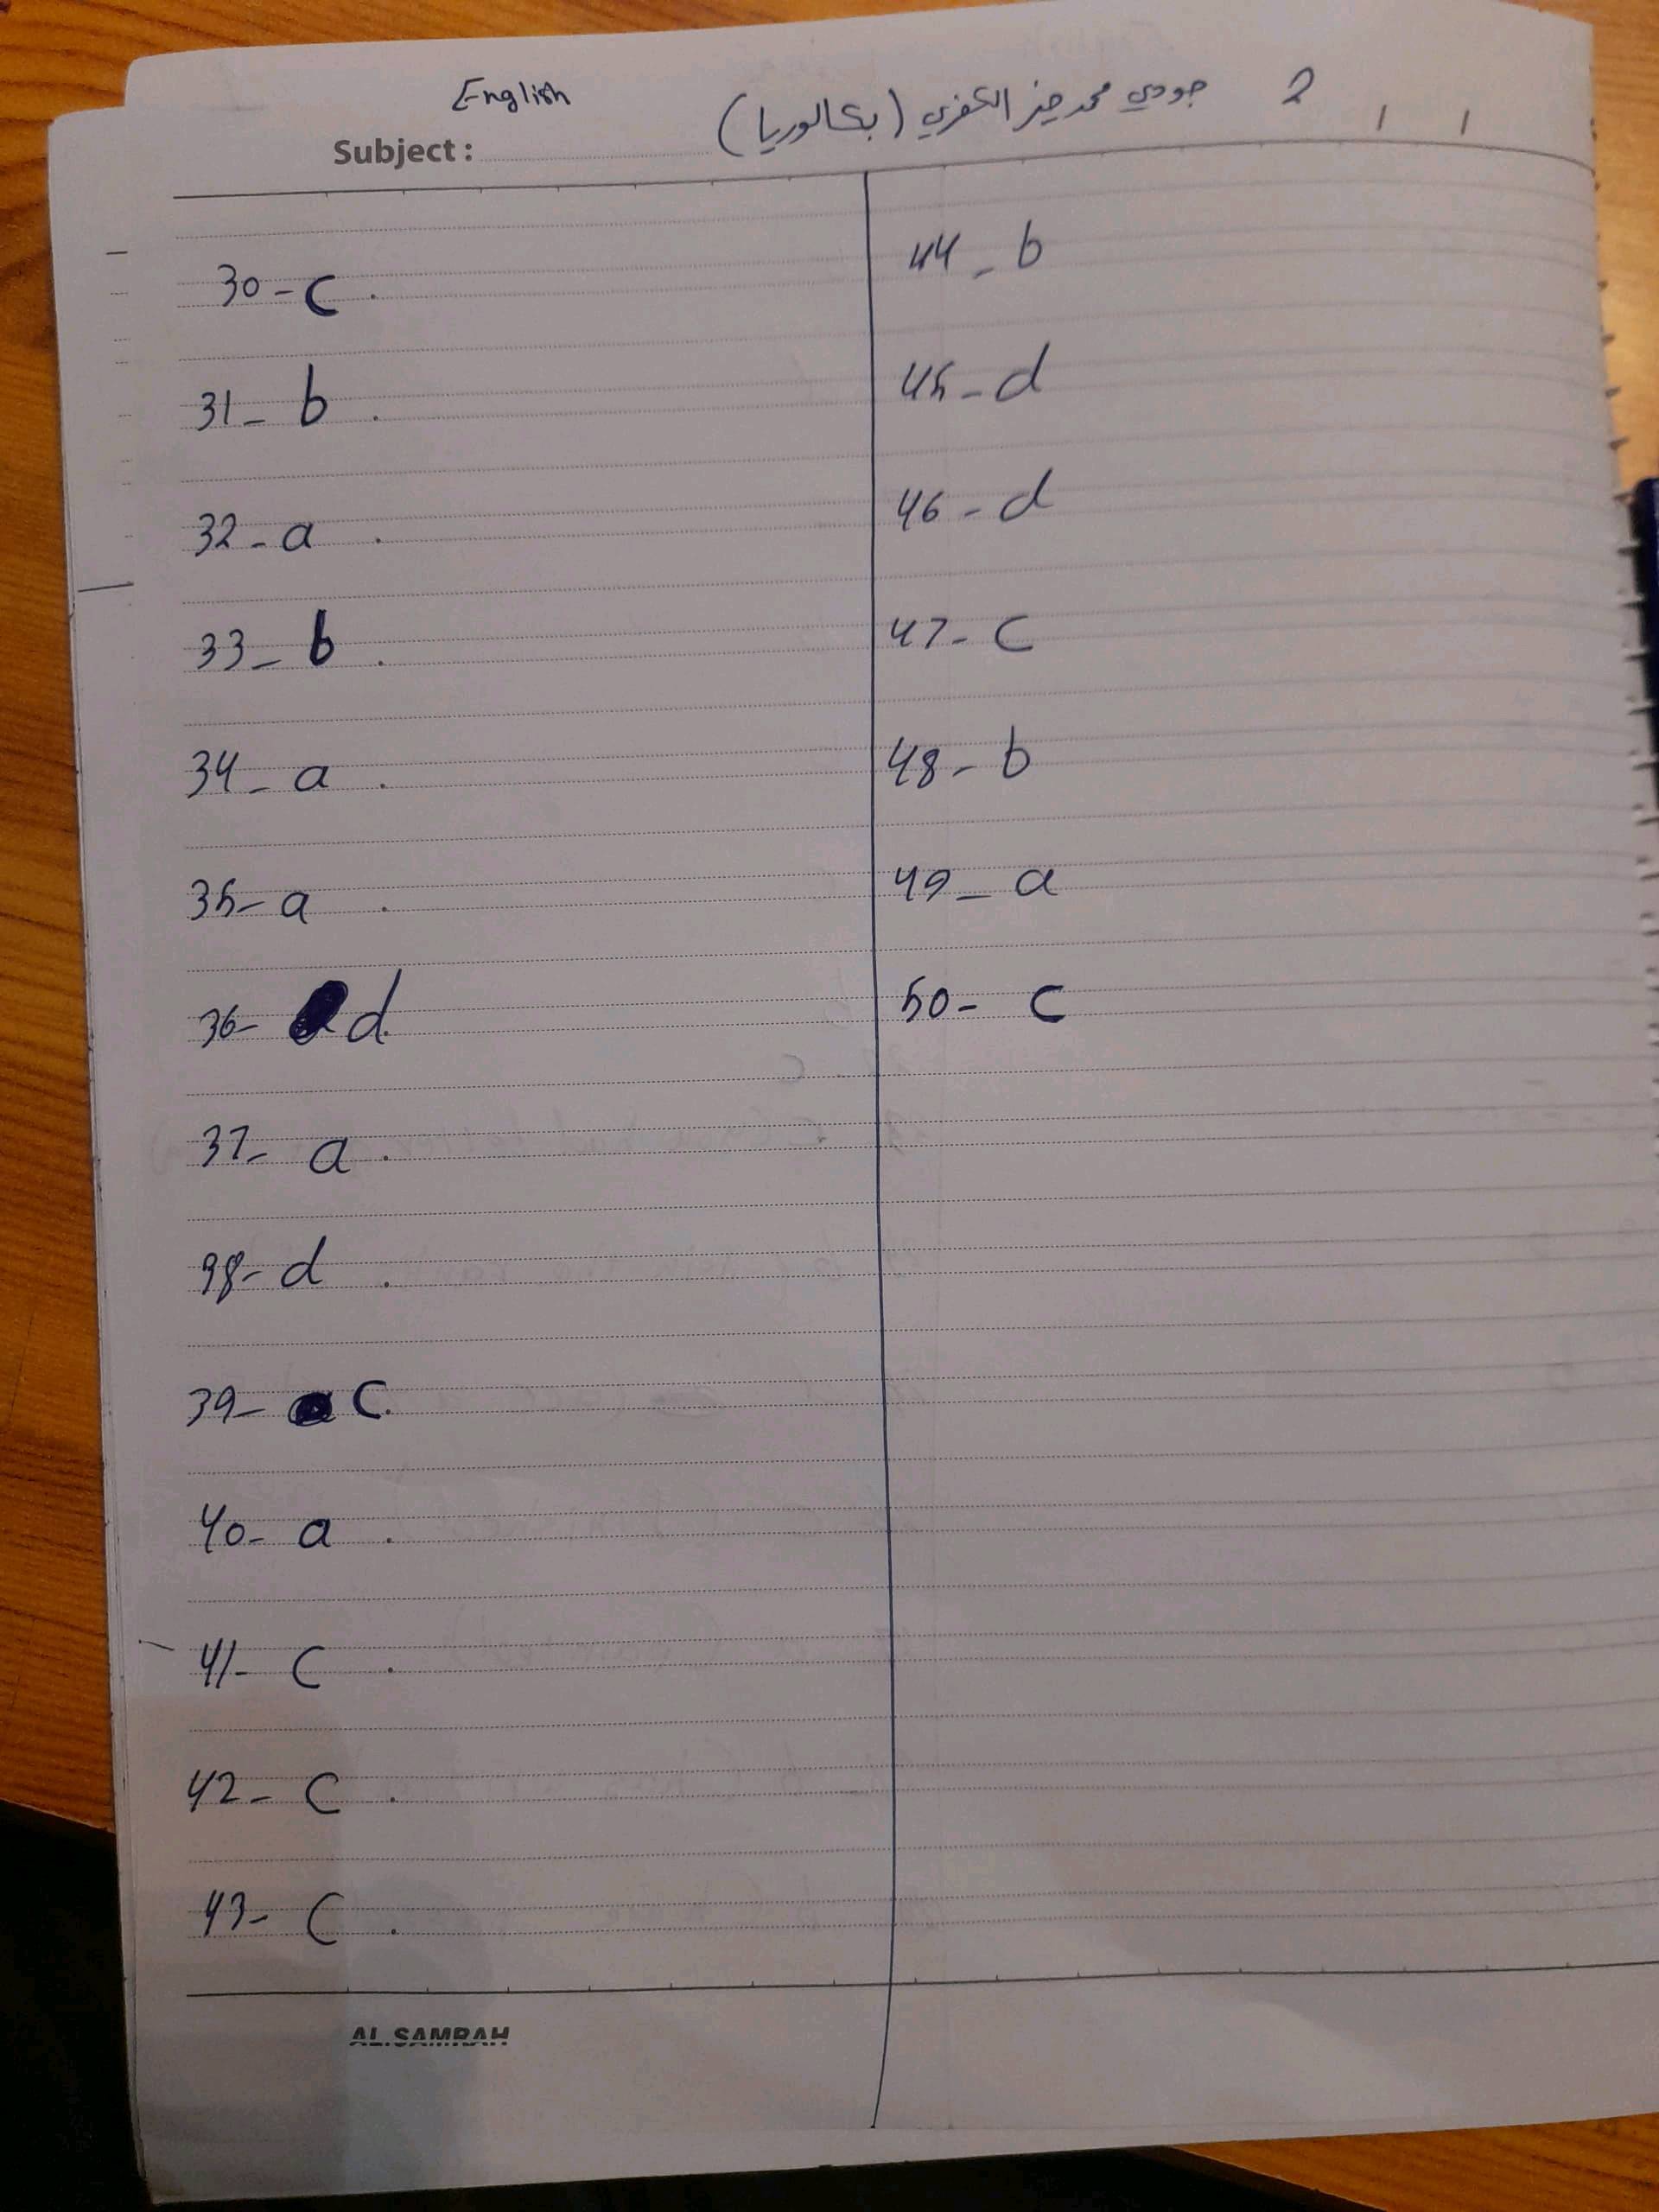 English
Subject :
جودي محمد خير الكفري (بكالوريا)
2
30 - c .
31 - b .
32 - a .
33 - b .
34 - a .
35 - a .
36 - d.
37 - a .
38 - d .
39 - c.
40 - a .
41 - c .
42 - c .
43 - c .
44 - b
45 - d
46 - d
47 - c
48 - b
49 - a
50 - c
AL.SAMRAH